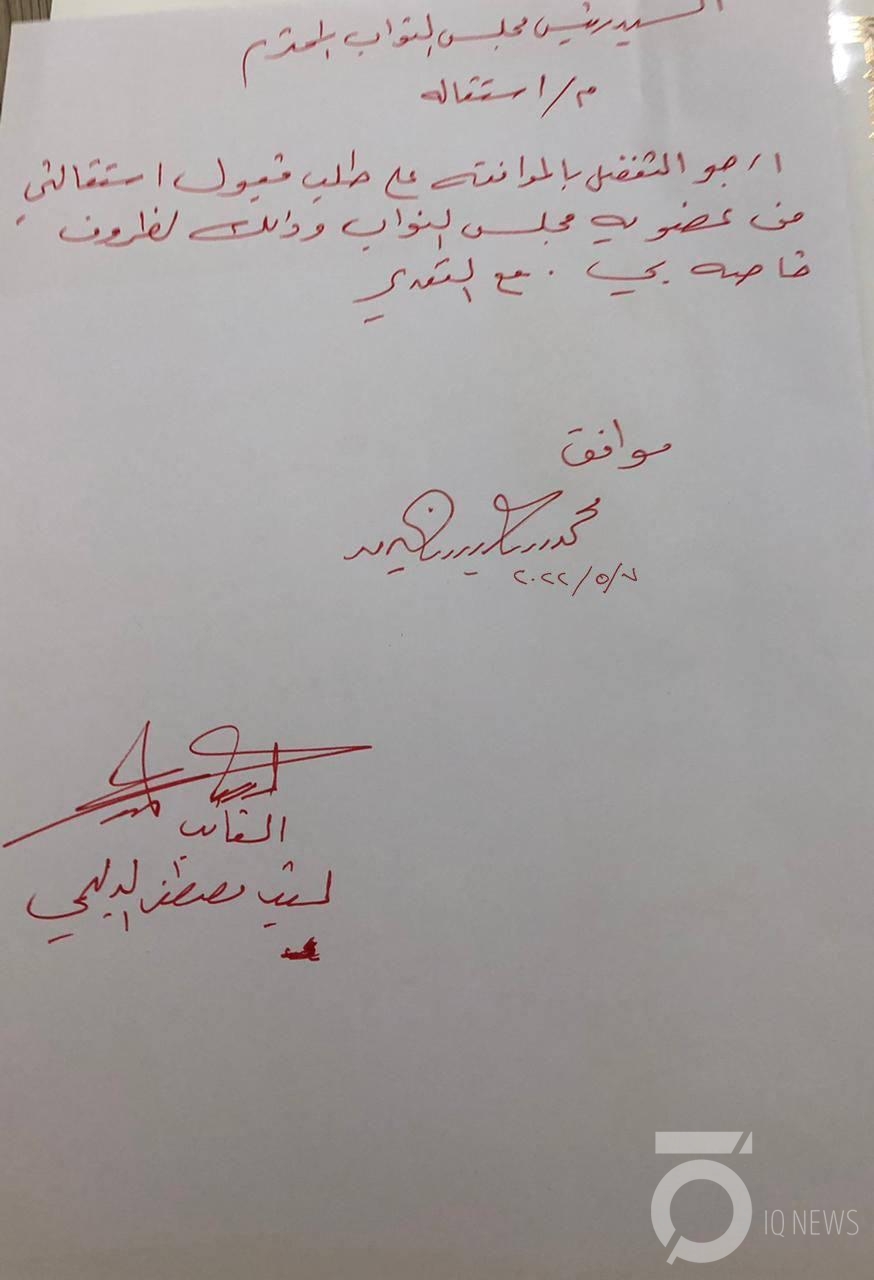 السيد رئيس مجلس النواب المحترم
م/ استقاله
ارجو التفضل بالموافقه على طلب قبول استقالتي
من عضويه مجلس النواب وذالك لظروف
خاصه بي . مع التقدير
موافق
محمد
٢٠٢٢/٥/
النائب
ليث مصطفى الدليمي
IQ NEWS